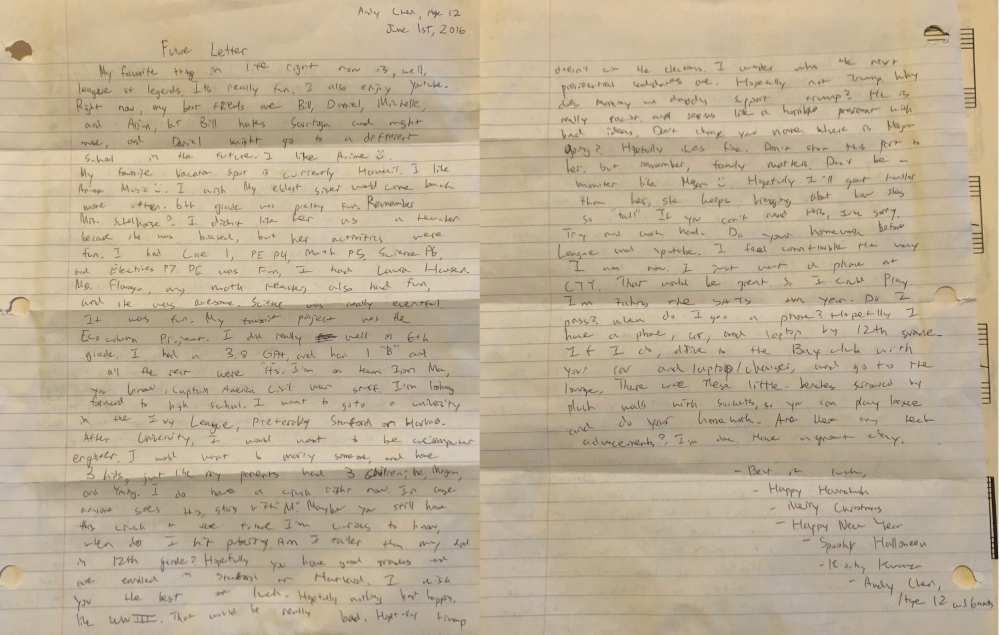 Andy Chen, Age 12
June 1st, 2016
Future Letter
My favorite thing in life right now is, well,
league of legends. Its really fun. I also enjoy youtube.
Right now, my best friends are Bill, Daniel, Michelle,
and Arjun, but Bill hates Saratoga and might
move, and Daniel might go to a different
school in the future. I like Anime
My favorite vacation spot is currently Hawaii. I like
Anime Music. I wish my eldest sister would come back
more often. 6th grade was pretty fun. Remember
Mrs. ? I didn't like her as a teacher
because she was biased, but her activities were
fun. I had Core 1, PE P4, Math P5, Science P6,
and Electives P7. PE was fun, I had Laura Hansen.
Ms. Flanagan, my math teacher also had fun,
and she was awesome. Science was really eventful
It was fun. My favorite project was the
Ecocolumn Project. I did really well in 6th
grade. I had a 3.8 GPA, and had 1 "B" and
all the rest were "A"s. I'm on team Iron Man,
you know, Captain America Civil War stuff. I'm looking
forward to high school. I want to go to a university
in the Ivy League, preferably Stanford or Harvard.
After University, I would want to be a Computer
engineer. I would want to marry someone, and have
3 kids, just like my parents had 3 children, me, Megan,
and . I do have a crush right now. In case
anyone sees this, starts with "M". Maybe you still have
this crush in the future. I'm curious to know,
when do I hit puberty. Am I taller than my dad
in 12th grade? Hopefully you have good grades and
are enrolled in Stanford or Harvard. I wish
you the best of luck. Hopefully nothing bad happens,
like WWIII. That would be really bad. Hopefully trump
doesn't win the elections. I wonder who the next
presidential candidates are. Hopefully not Trump. Why
does mommy and daddy support trump? He is
really racist, and seems like a horrible president with
bad ideas. Don't change you name. Where is Megan
going? Hopefully shes fine. Don't show this part to
her, but remember, family matters. Don't be a
monster like Megan. Hopefully I'll grow taller
than her, she keeps bragging about how shes
so "tall". If you can't read this, I'm sorry.
Try and work hard. Do your homework before
League and youtube. I feel comfortable the way
I am now. I just want a phone at
CTY. That would be great. So I could Play.
I'm taking the SATS this year. Do I
pass? When do I get a phone? Hopefully I
have a phone, car, and laptop by 12th grade.
If I do, drive to the Bay club with
your car and laptop/charger, and go to the
lounge. There were these little benches surrounded by
plush walls with sockets, so you can play league
and do your homework. Are there any tech
advancements? I'm done. Have a great day,
- Best of luck,
- Happy Hannukah
- Merry Christmas
- Happy New Year
- Spooky Halloween
- Kwanza
- Andy Chen,
Age 12 and 6 months